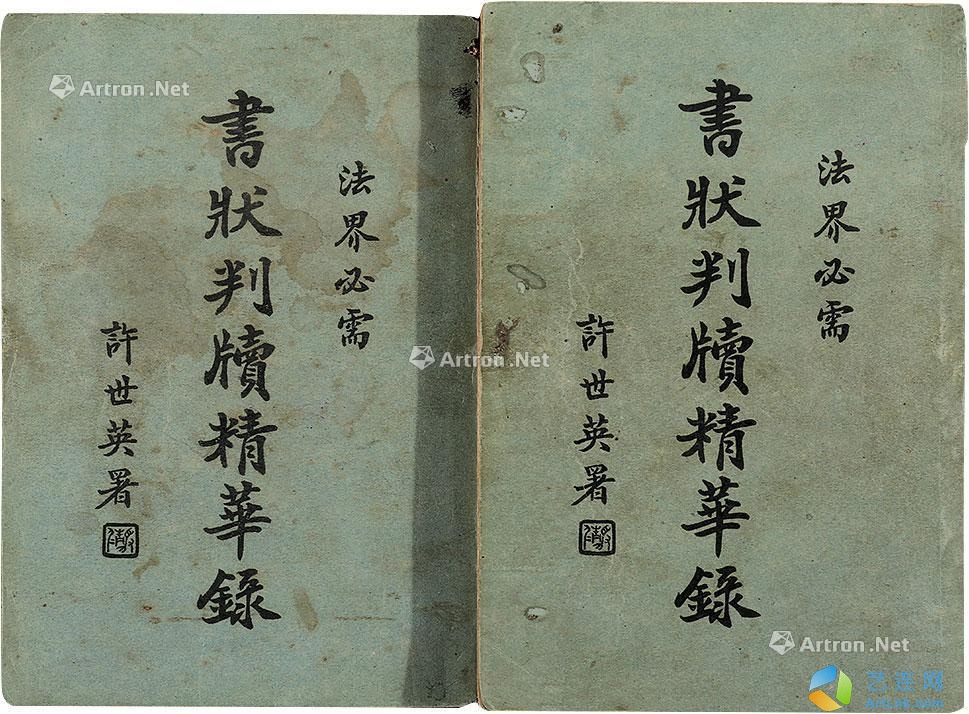 法界必需
書狀判牘精華錄
許世英署
法界必需
書狀判牘精華錄
許世英署
Artron.Net
Artron.Net
Artron.Net